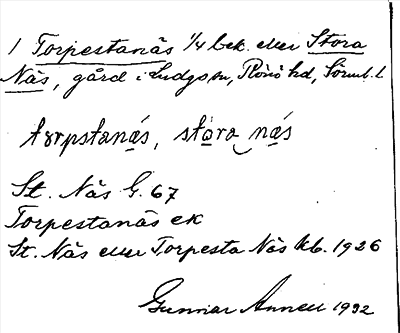 1 Torpestanäs 1/4 bek. eller Stora
Näs, gård i Ludgo sn, Rönö hd, Sörml. l
tǫrpstanä̀s, stɷra näs
St. Näs G. 67
Torpestanäs ek
St. Näs eller Torpesta Näs kb. 1926
Gunnar Annell 1932